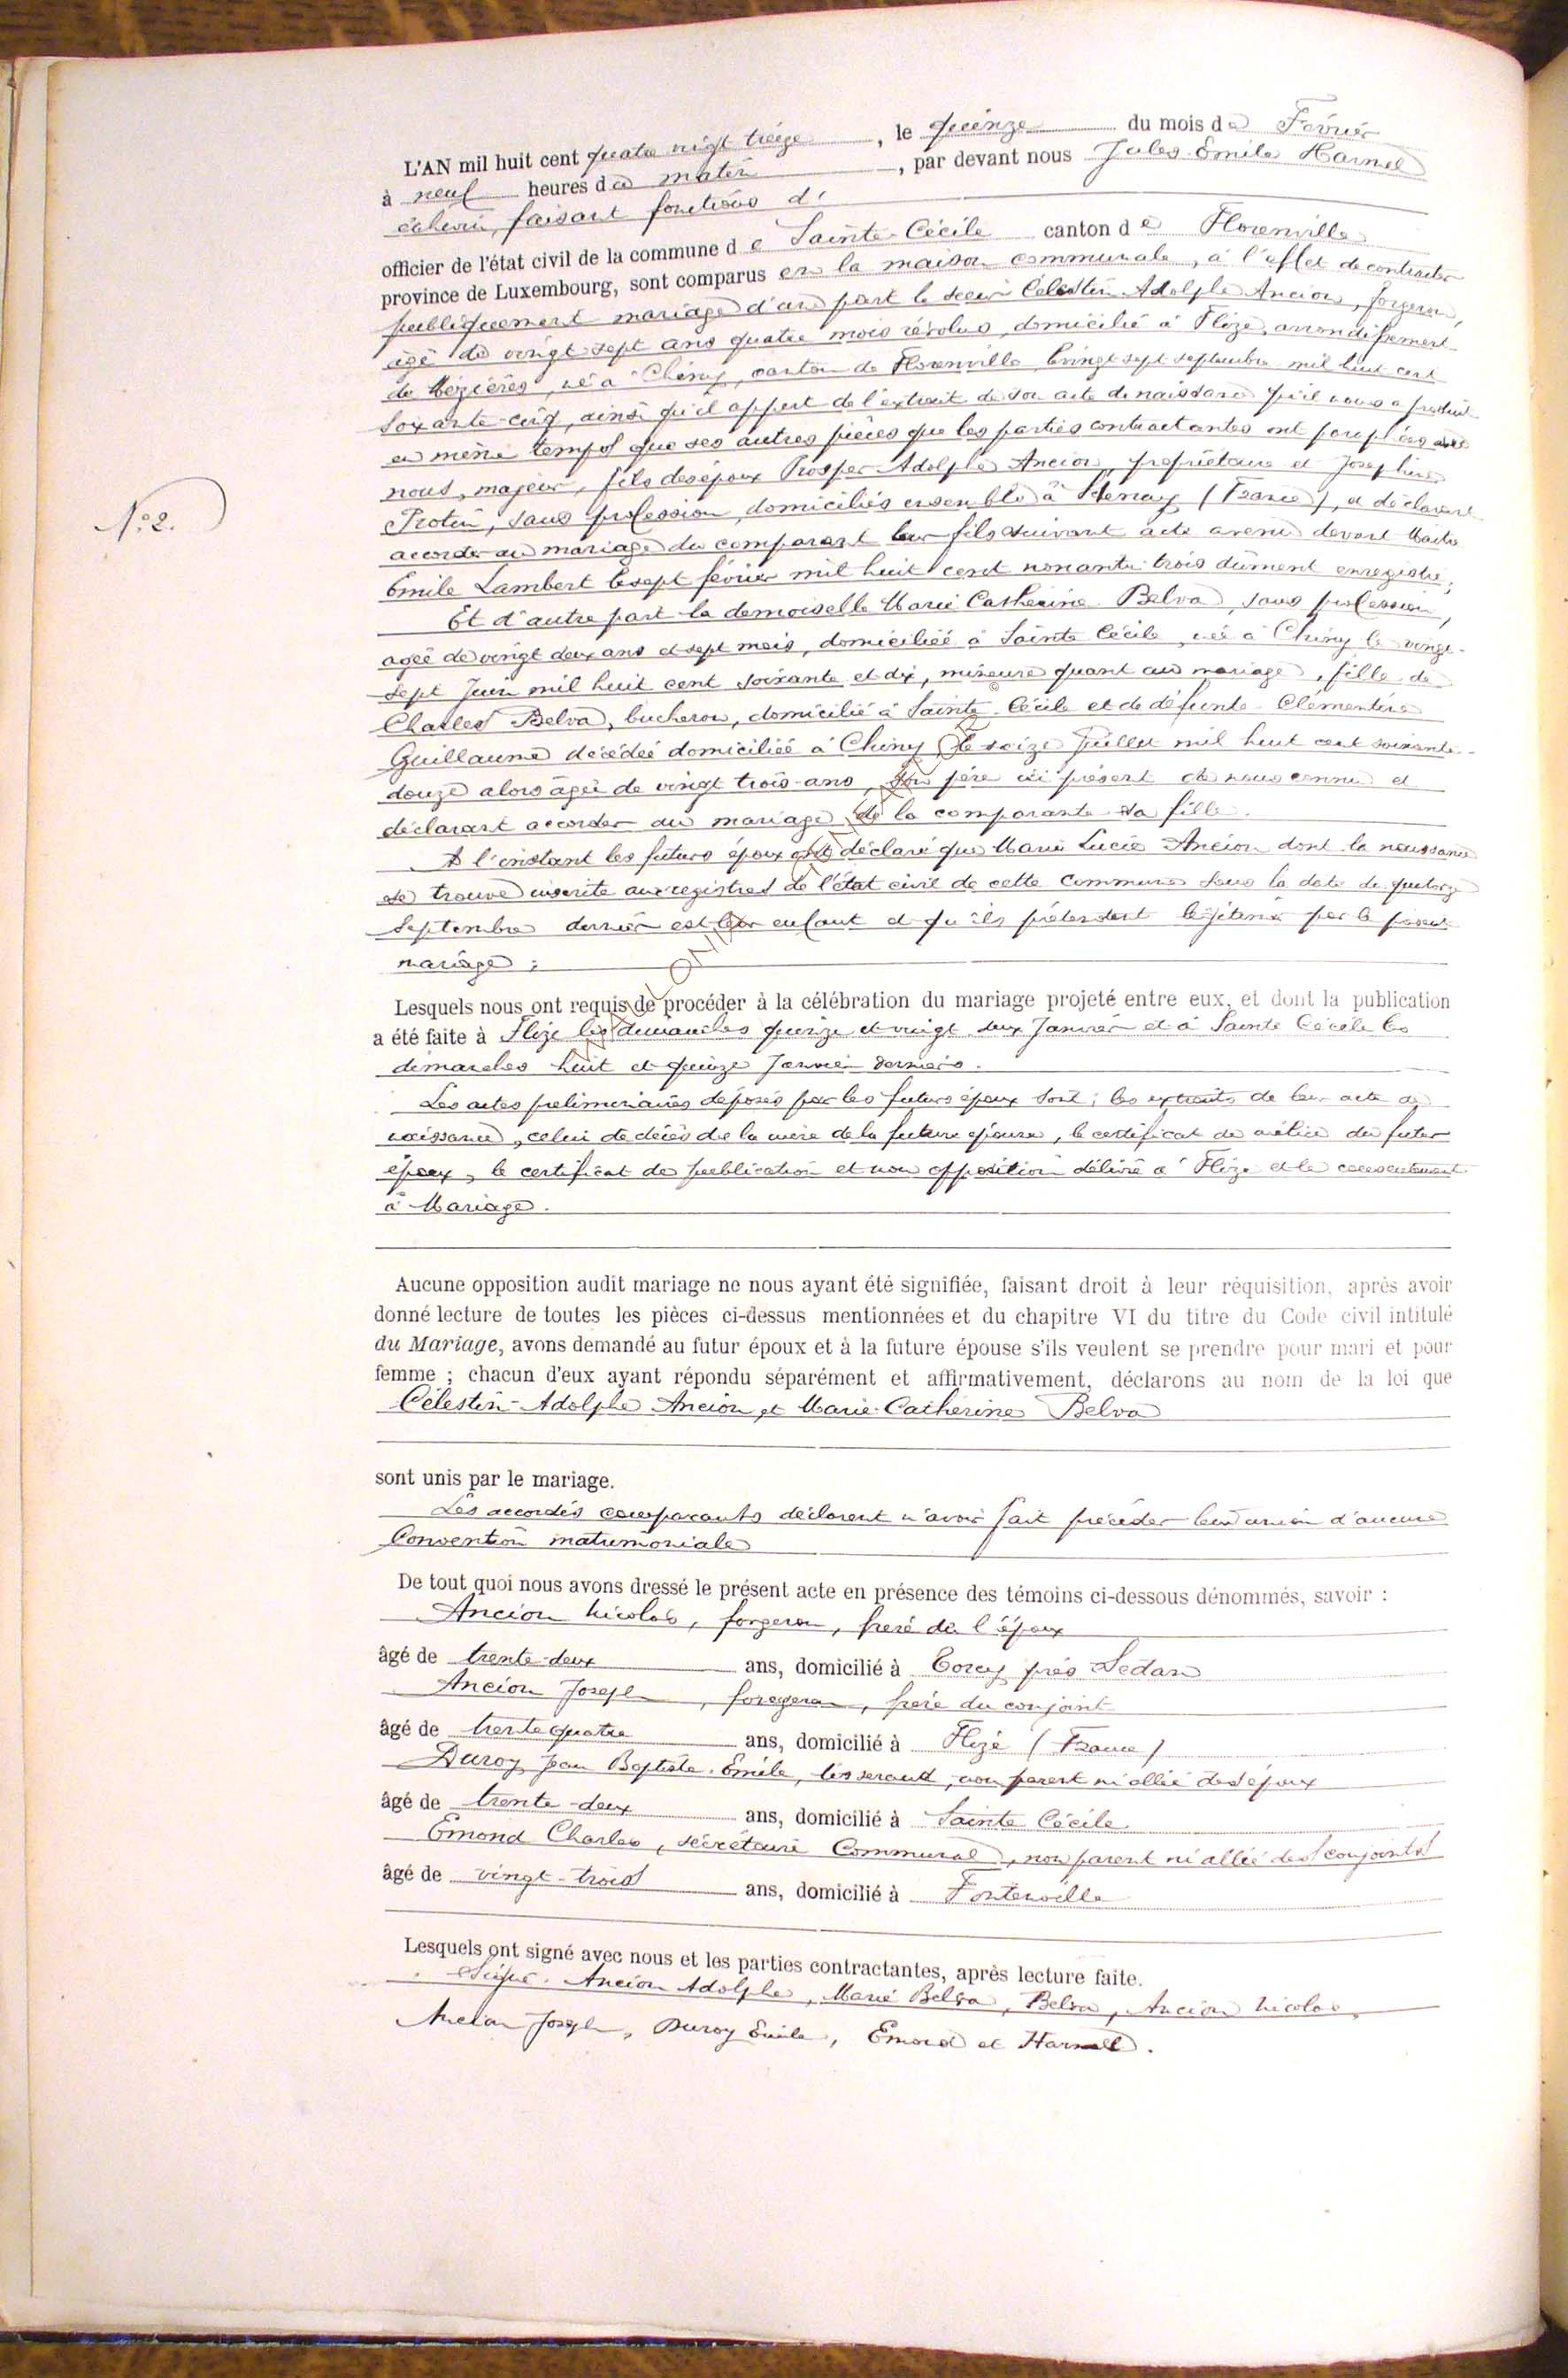 L'AN mil huit cent quatre vingt treize, le quinze du mois de Février
à neuf heures du matin, par devant nous Jules Emile Harnel
échevin, faisant fonctions d'
officier de l'état civil de la commune de Sainte-Cécile canton de Florenville
province de Luxembourg, sont comparus en la maison communale, à l'effet de contracter
publiquement mariage d'une part le sieur Célestin Adolphe Ancion, forgeron,
âgé de vingt-sept ans quatre mois révolus, domicilié à Flize, arrondissement
de Mézières, né à Chiny, canton de Florenville le vingt sept septembre mil huit cent
soixante-cinq, ainsi qu'il appert de l'extrait de son acte de naissance qu'il nous a produit
en même temps que ses autres pièces que les parties contractantes ont
nous, majeur, fils des époux Prosper Adolphe Ancion, propriétaire et Joséphine
Protin, sans profession, domiciliés ensemble à Stenay (France), a déclarant
accorder au mariage du comparant leur fils suivant acte avenu devant Maître
Emile Lambert le sept février mil huit cent nonante-trois dûment enregistré;
Et d'autre part la demoiselle Marie Catherine Belva, sans profession,
agée de vingt deux ans et sept mois, domiciliée à Sainte Cécile, née à Chiny le vingt-
sept Juin mil huit cent soixante et dix, mineure quant au mariage, fille de
Charles Belva, bucheron, domicilié à Sainte-Cécile et de défunte Clémentine
Guillaume décédée domiciliée à Chiny, le seize Juillet mil huit cent soixante-
douze alors âgée de vingt trois ans, son père ici présent de nous connu et
déclarant accorder au mariage de la comparante sa fille.
A l'instant les futurs époux ont déclaré que Marie Lucie Ancion dont la naissance
se trouve inscrite aux registres de l'état civil de cette Commune sous la date du quatorze
Septembre dernier est leur enfant et qu'ils prétendent légitimer par le présent
mariage;
Lesquels nous ont requis de procéder à la célébration du mariage projeté entre eux, et dont la publication
a été faite à Flize les dimanches quinze et vingt deux Janvier et à Sainte Cécile les
dimanches huit et quinze Janvier derniers.
Les actes préliminaires déposés par les futurs époux sont; les extraits de leur acte de
naissance, celui de décès de la mère de la future épouse, le certificat de milice du futur
époux, le certificat de publication et non opposition délivré à Flize et le consentement
à Mariage.
Aucune opposition audit mariage ne nous ayant été signifiée, faisant droit à leur réquisition, après avoir
donné lecture de toutes les pièces ci-dessus mentionnées et du chapitre VI du titre du Code civil intitulé
du Mariage, avons demandé au futur époux et à la future épouse s'ils veulent se prendre pour mari et pour
femme ; chacun d'eux ayant répondu séparément et affirmativement, déclarons au nom de la loi que
Célestin-Adolphe Ancion, et Marie-Catherine Belva
sont unis par le mariage.
Les accordés comparants déclarent n'avoir fait précéder leur union d'aucune
Convention matrimoniale
De tout quoi nous avons dressé le présent acte en présence des témoins ci-dessous dénommés, savoir :
Ancion Nicolas, forgeron, frère de l'époux
âgé de trente-deux ans, domicilié à Torcy près Sedan
Ancion Joseph, forgeron, frère du conjoint
âgé de trente quatre ans, domicilié à Flize (France)
Duroy Jean Baptiste Emile, tisserand, non parent ni allié des époux
âgé de trente-deux ans, domicilié à Sainte Cécile
Emond Charles, sécrétaire Communal, non parent ni allié des conjoints
âgé de vingt-trois ans, domicilié à Fontenoille
Lesquels ont signé avec nous et les parties contractantes, après lecture faite.
Signé. Ancion Adolphe, Marie Belva, Belva, Ancion Nicolas,
Ancion Joseph, Duroy Emile, Emond et Harnel.
N° 2.